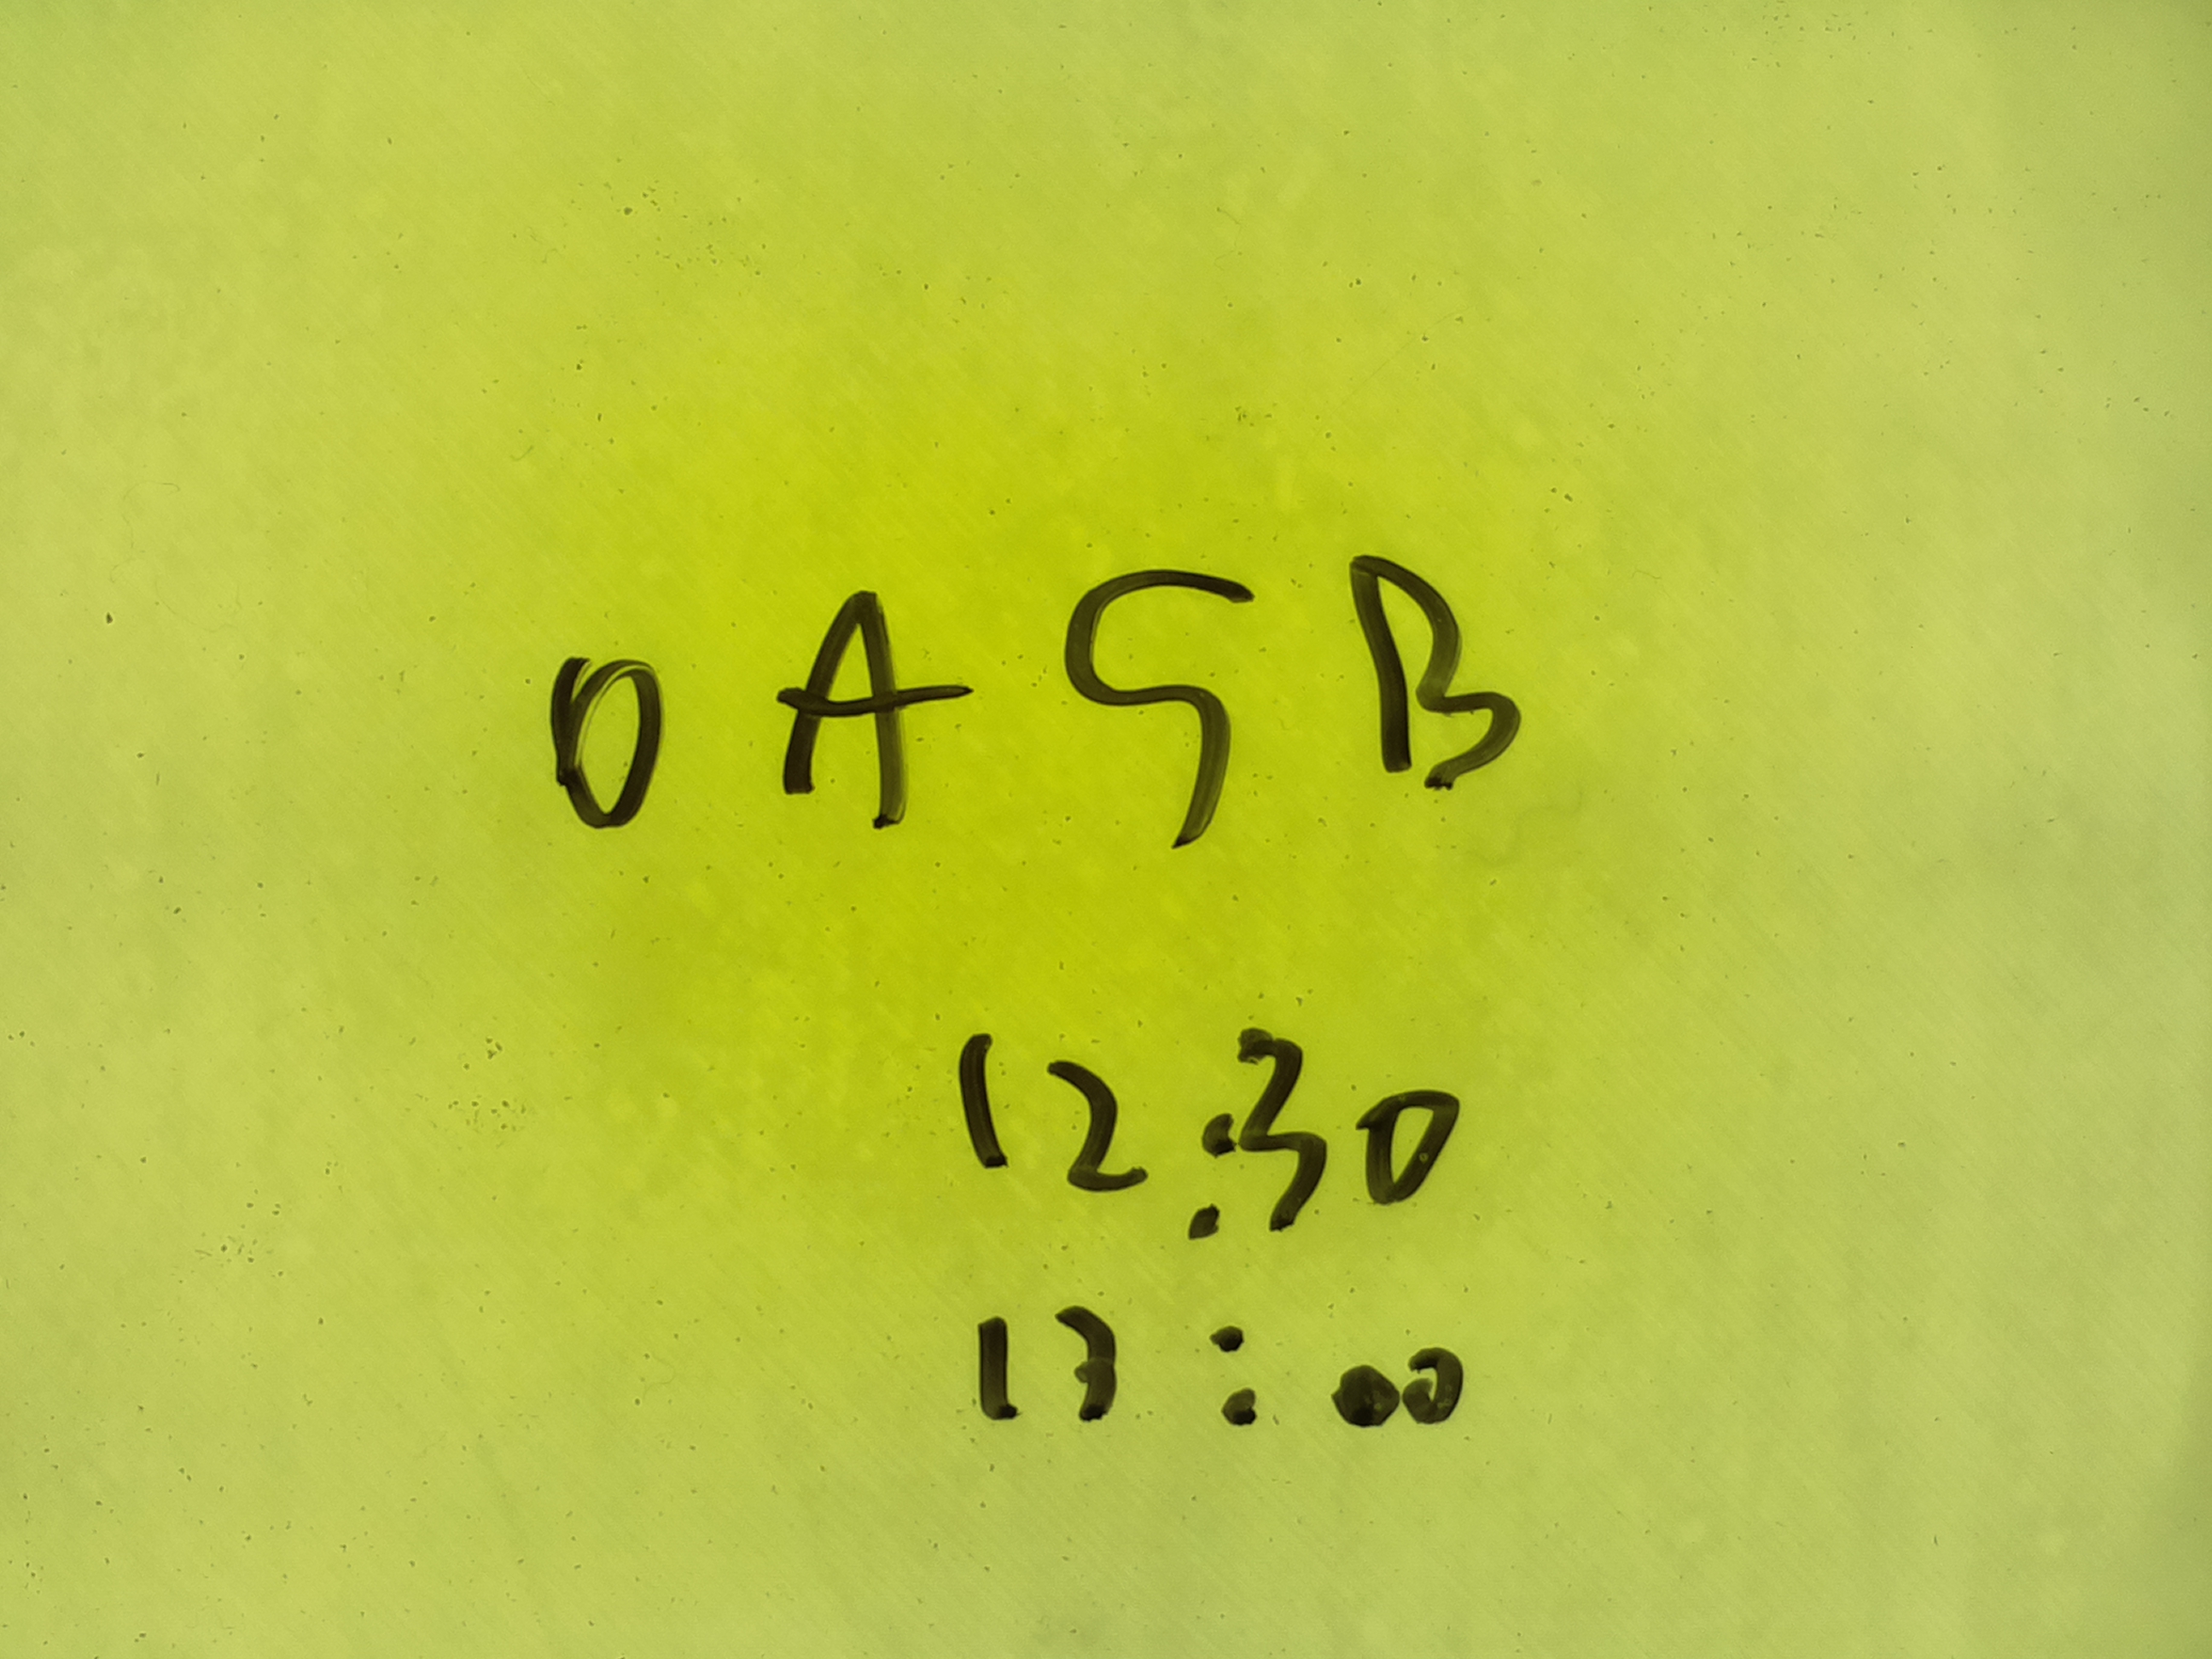 OAGB
12:30
13:00